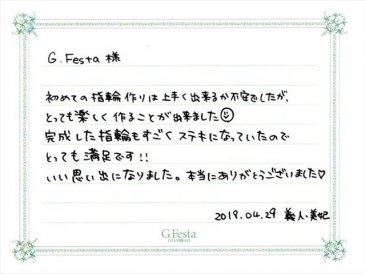 G.Festa 様
初めての指輪作りは上手く出来るか不安でしたが、
とっても楽しく作ることが出来ました☺
完成した指輪もすごくステキになっていたので
とっても満足です!!
いい思い出になりました。本当にありがとうございました♡
2019.04.29 義人・美妃
G.Festa